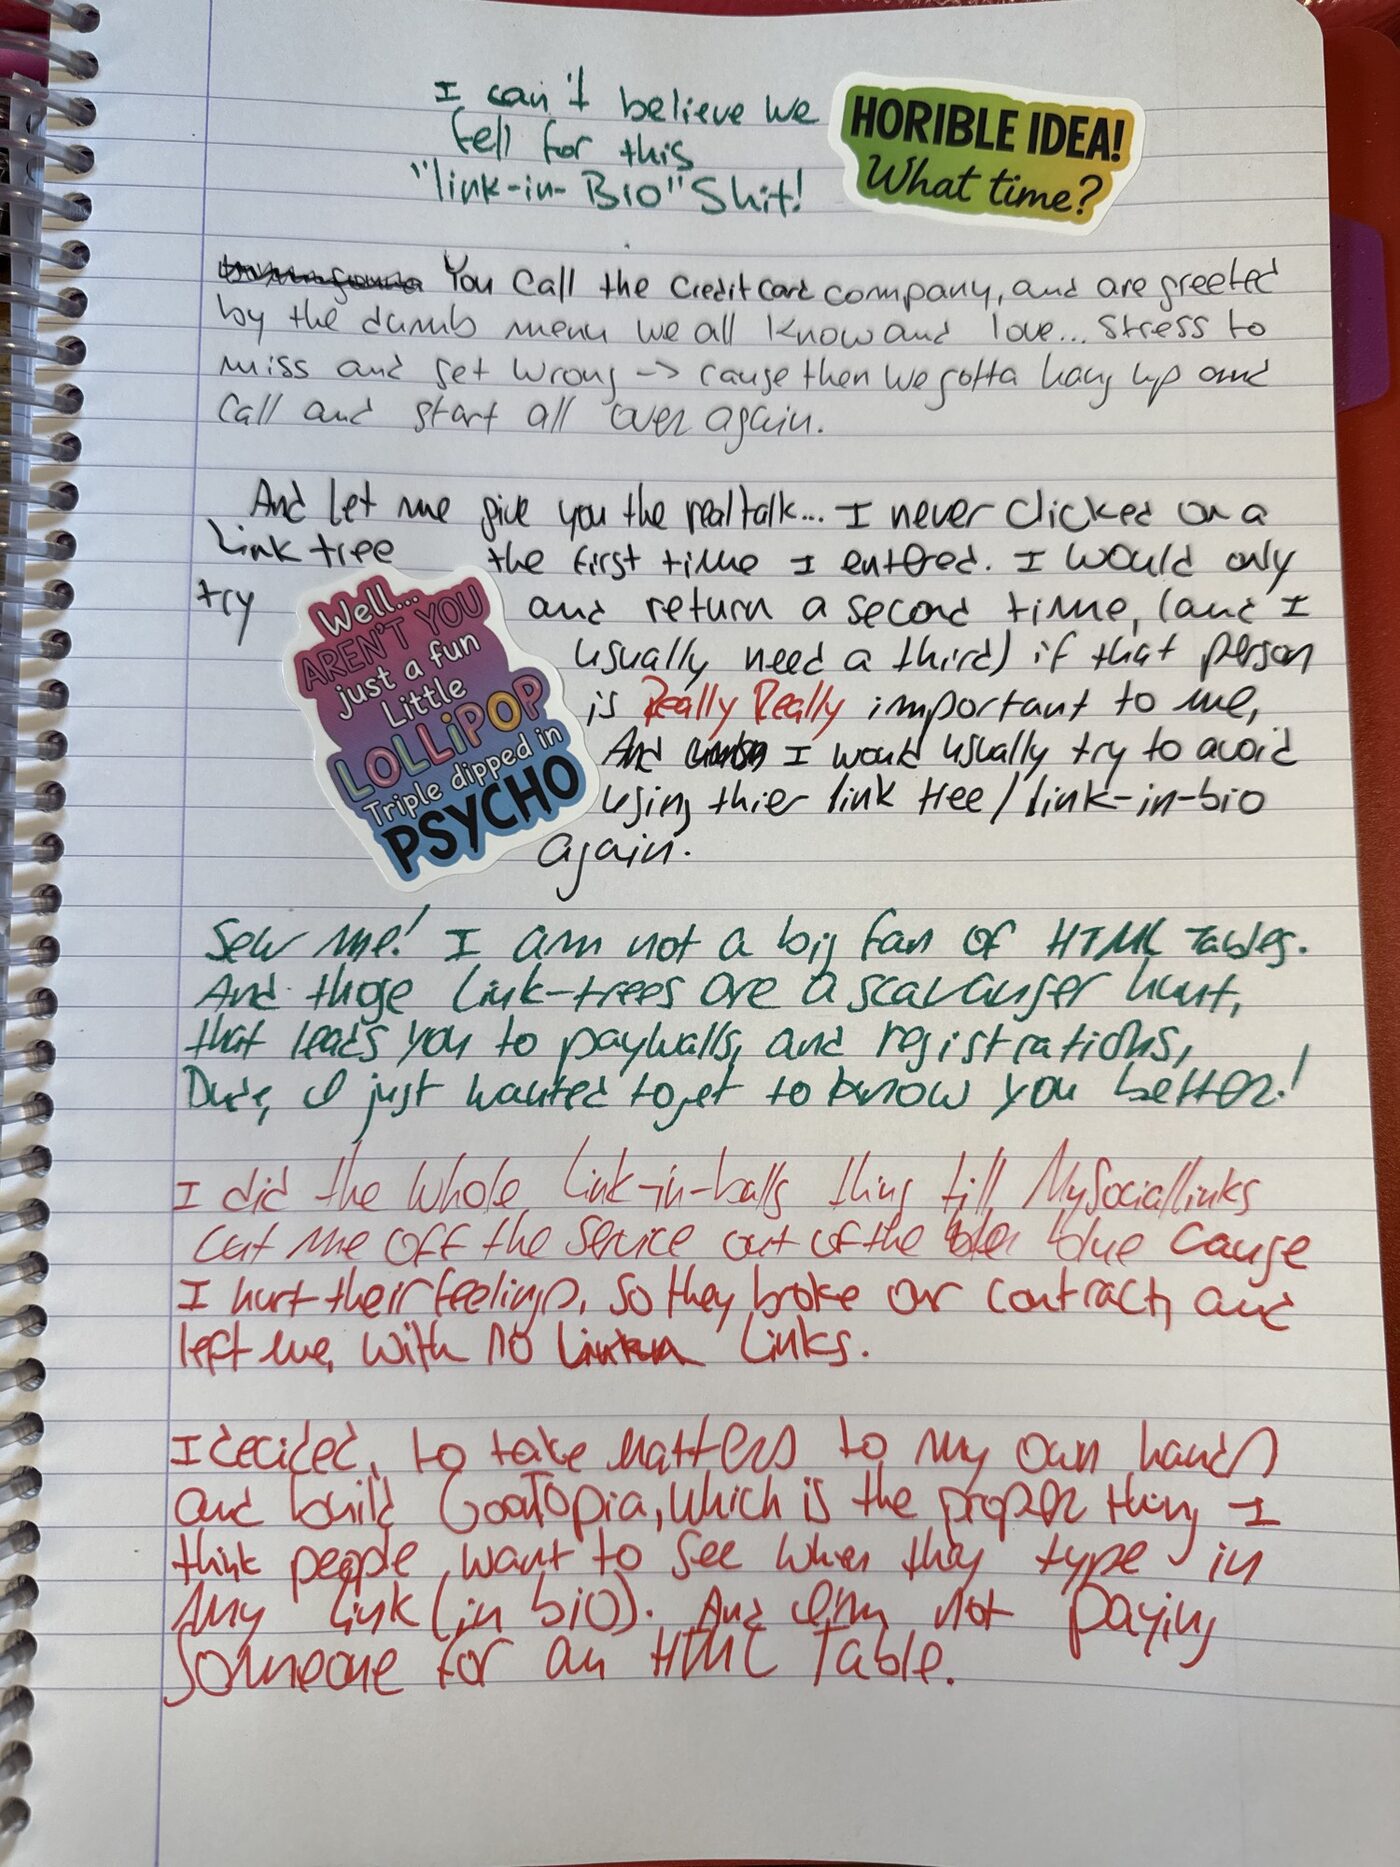 I can't believe we
fell for this
"link-in-BIO" Shit!
HORIBLE IDEA!
What time?
You Call the Credit Card company, and are greeted
by the dumb menu we all know and love... stress to
miss and get wrong -> cause then we gotta hang up and
Call and start all over again.
And let me give you the real talk... I never clicked on a
Link tree the first time I entered. I would only
try and return a second time, (and I
usually need a third) if that person
is Really Really important to me,
And I would usually try to avoid
using thier link tree / link-in-bio
again.
Well...
AREN'T YOU
just a fun
Little
LOLLiPOP
Triple dipped in
PSYCHO
Sew me! I am not a big fan of HTML Tables.
And those link-trees are a scavanger hunt,
that leads you to paywalls, and registrations,
Dude, I just wanted to get to know you better!
I did the whole link-in-balls thing till MySociallinks
cut me off the service out of the blue cause
I hurt their feelings, so they broke our contract, and
left me, with no links.
I decided, to take matters to my own hands
and build GoatTopia, which is the proper thing I
think people want to see when they type in
my link (in bio). And I'm not paying
someone for an HTML Table.